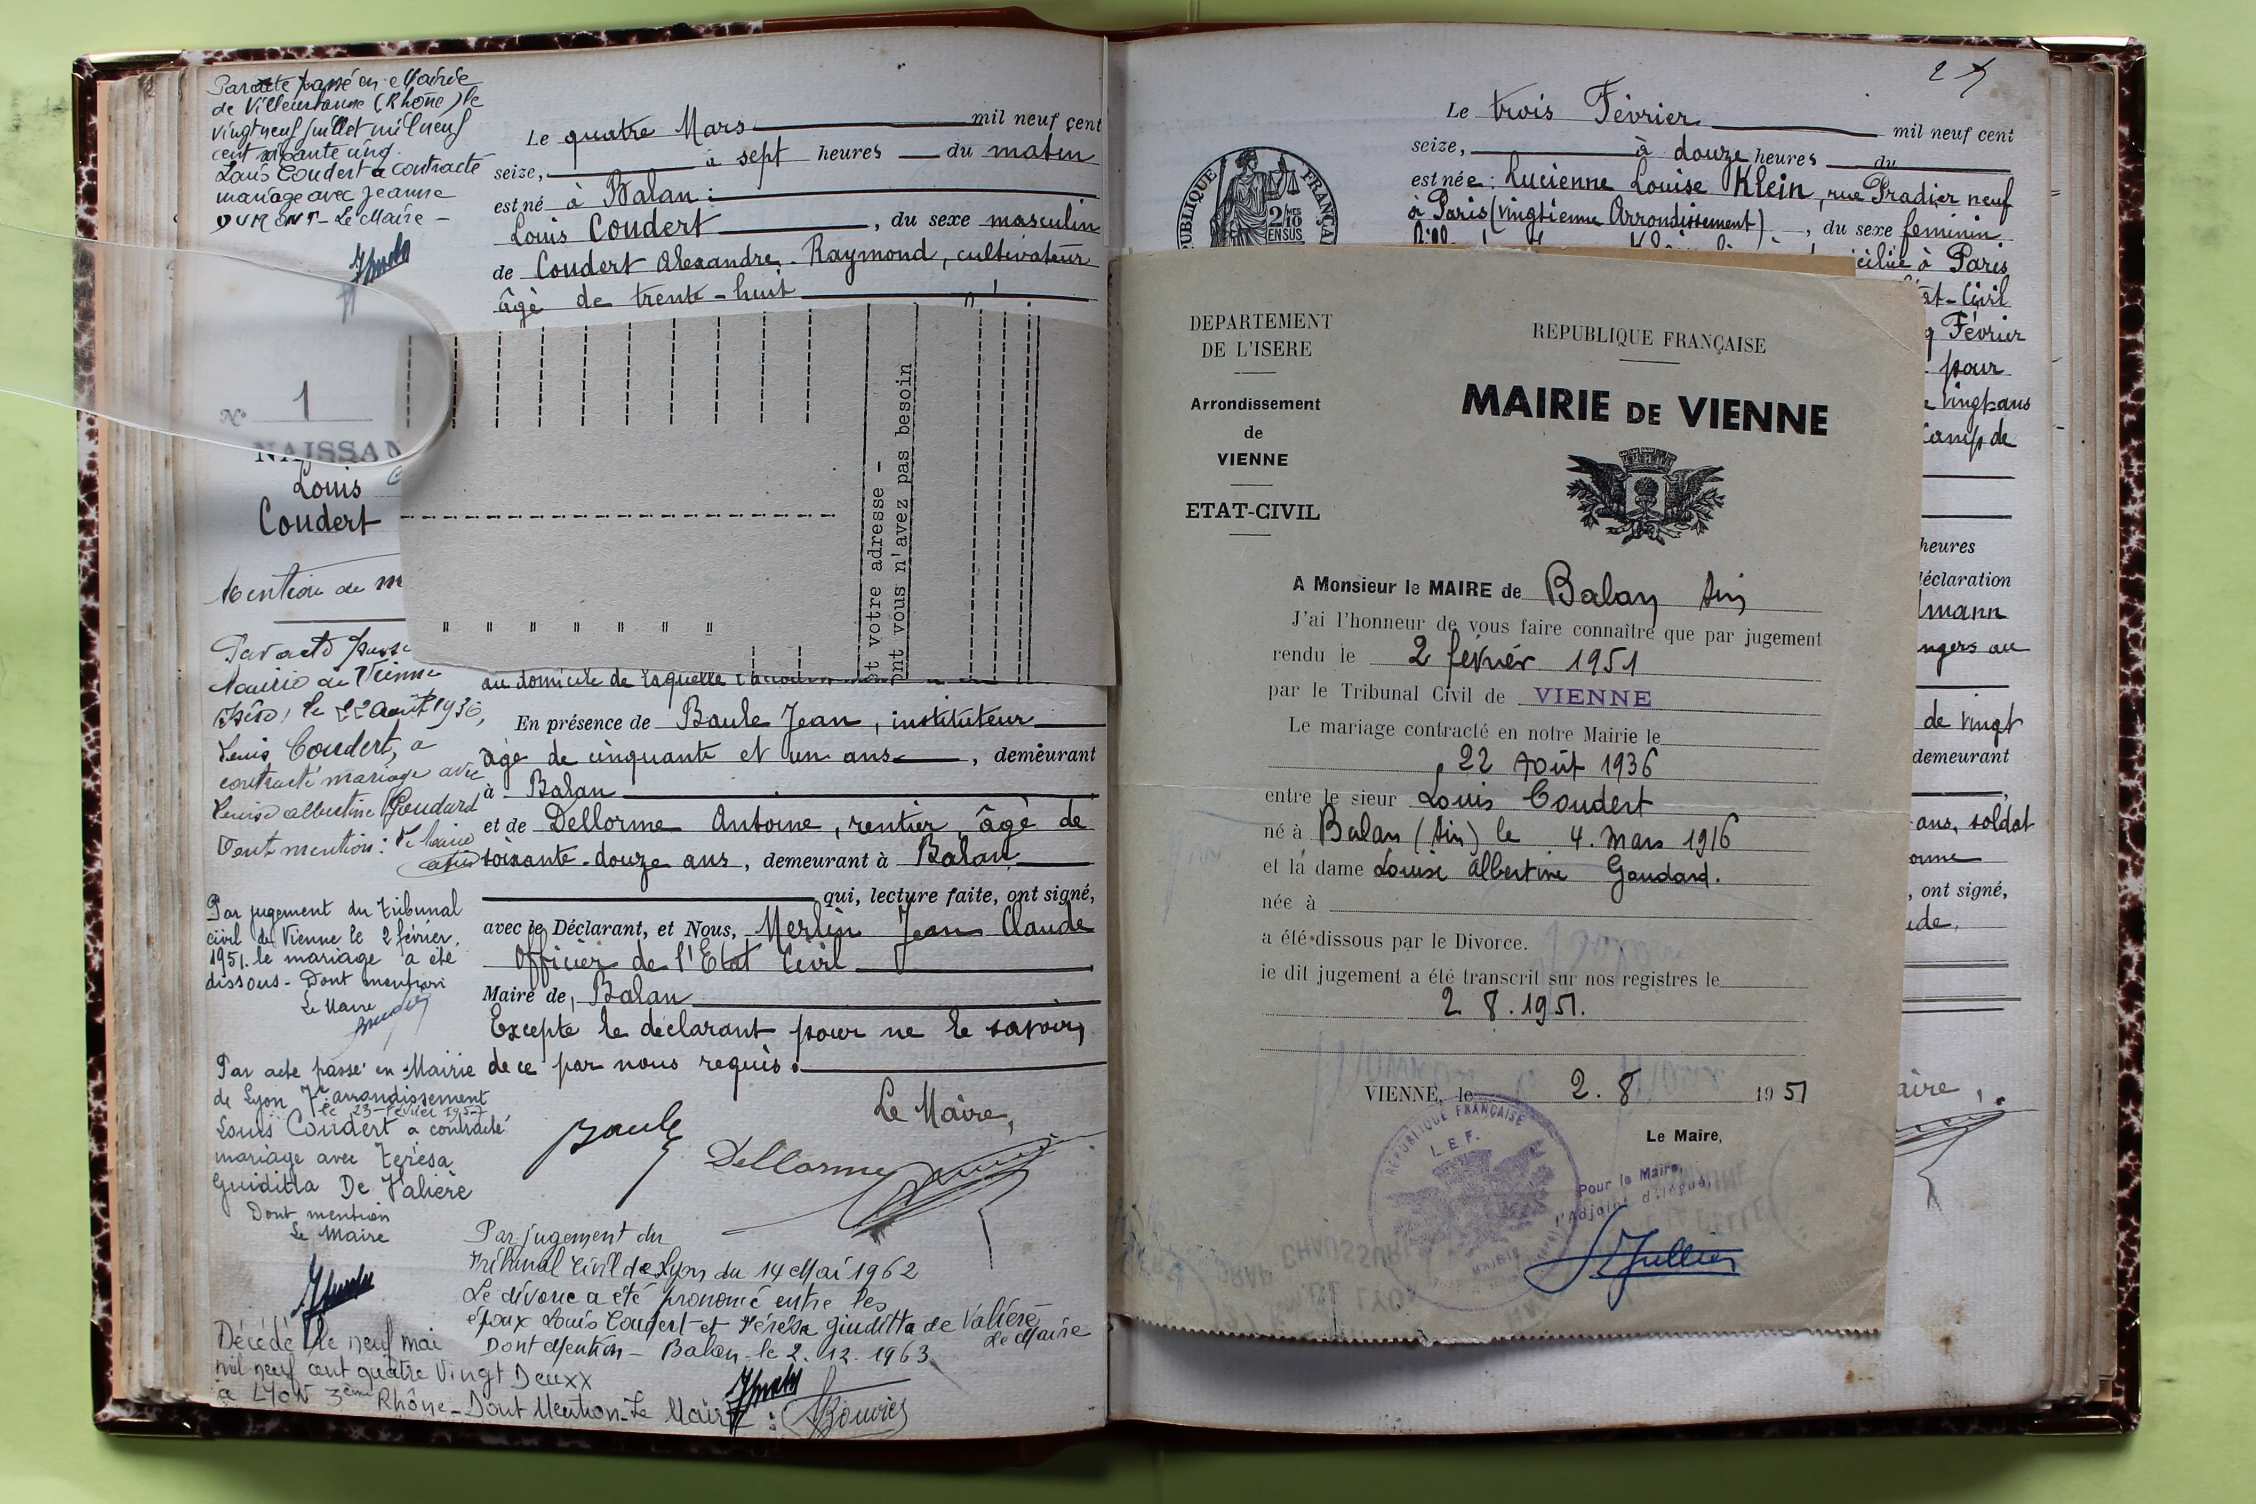 Par acte passé en Mairie
de Villeurbanne (Rhône) le
vingt neuf juillet mil neuf
cent soixante cinq
Louis Coudert a contracté
mariage avec Jeanne
DUMONT - Le Maire -
N° 1
NAISSAN
Louis
Coudert
Mention de m
Par acte passé
Mairie de Vienne
Isère, le 22 août 1936,
Louis Coudert, a
contracté mariage avec
Louise Albertine Goudard
Dont mention : le Maire
Par jugement du tribunal
civil de Vienne le 2 février
1951. le mariage a été
dissous - Dont mention
Le Maire
Par acte passé en Mairie
de Lyon 7e arrondissement
le 23 - février 1957
Louis Coudert a contracté
mariage avec Térésa
Guiditta De Valière
Dont mention
Le Maire
Décédé le neuf mai
mil neuf cent quatre Vingt Deuxx
à LYON 3ème Rhône - Dont Mention - Le Maire :
Le quatre Mars mil neuf cent
seize, à sept heures du matin
est né à Balan :
Louis Coudert, du sexe masculin
de Coudert Alexandre Raymond, cultivateur
âgé de trente-huit
st votre adresse -
ont vous n'avez pas besoin
" " " " " " "
au domicile de laquelle
En présence de Baule Jean, instituteur
âgé de cinquante et un ans, demeurant
à Balan
et de Dellorme Antoine, rentier, âgé de
soixante-douze ans, demeurant à Balan
qui, lecture faite, ont signé,
avec le Déclarant, et Nous, Merlin Jean Claude
Officier de l'Etat Civil
Maire de, Balan
Excepté le déclarant pour ne le savoir,
de ce par nous requis.
Le Maire,
Baule
Dellorme
Par jugement du
Tribunal Civil de Lyon du 14 Mai 1962
Le divorce a été prononcé entre les
époux Louis Coudert et Térésa Giuditta de Valière
Dont Mention - Balan le 2. 12. 1963 Le Maire
Le trois Février mil neuf cent
seize, à douze heures du
est née : Lucienne Louise Klein, rue Pradier neuf
à Paris (vingtième Arrondissement), du sexe féminin
ciliée à Paris
at-Civil
q Février
pour
vingt-ans
Camp de
heures
déclaration
lmann
ngers au
de vingt
demeurant
ans, soldat
onne
, ont signé,
ude,
aire,
RÉPUBLIQUE FRANÇA
2/10 MES
EN SUS
DEPARTEMENT
DE L'ISERE
Arrondissement
de
VIENNE
ETAT-CIVIL
REPUBLIQUE FRANÇAISE
MAIRIE DE VIENNE
A Monsieur le MAIRE de Balan Ain
J'ai l'honneur de vous faire connaître que par jugement
rendu le 2 février 1951
par le Tribunal Civil de VIENNE
Le mariage contracté en notre Mairie le
22 Août 1936
entre le sieur Louis Coudert
né à Balan (Ain) le 4. Mars 1916
et la dame Louise Albertine Goudard.
née à
a été dissous par le Divorce.
le dit jugement a été transcrit sur nos registres le
2 8 . 1951.
VIENNE, le 2. 8 1951
Le Maire,
Pour le Maire,
l'Adjoint délégué,
RÉPUBLIQUE FRANÇAISE
L.E.F.
MAIRIE